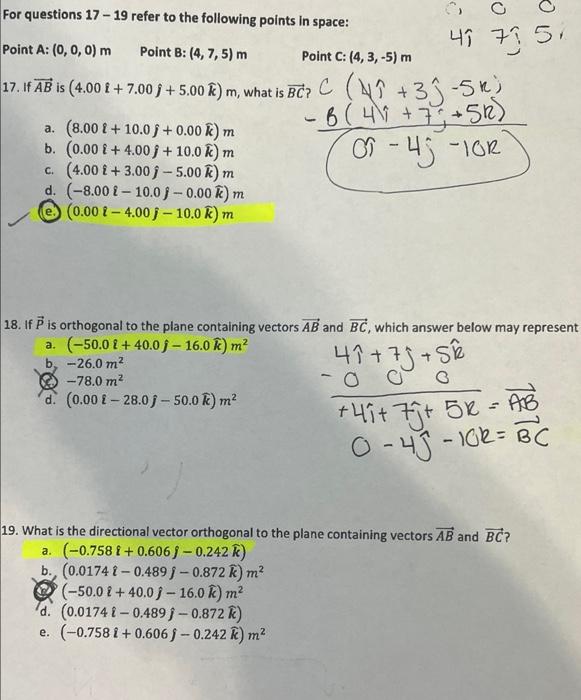 For questions 17 – 19 refer to the following points in space:
0 0 0
4î 7ĵ 5
Point A: (0, 0, 0) m Point B: (4, 7, 5) m Point C: (4, 3, -5) m
17. If AB is (4.00 î + 7.00 ĵ + 5.00 k̂) m, what is BC?
C (4î + 3ĵ - 5k)
- B (4î + 7ĵ + 5k)
0î - 4ĵ - 10k
a. (8.00 î + 10.0 ĵ + 0.00 k̂) m
b. (0.00 î + 4.00 ĵ + 10.0 k̂) m
c. (4.00 î + 3.00 ĵ – 5.00 k̂) m
d. (–8.00 î – 10.0 ĵ – 0.00 k̂) m
e. (0.00 î – 4.00 ĵ – 10.0 k̂) m
18. If P is orthogonal to the plane containing vectors AB and BC, which answer below may represent
a. (–50.0 î + 40.0 ĵ – 16.0 k̂) m²
b. –26.0 m²
c. –78.0 m²
d. (0.00 î – 28.0 ĵ – 50.0 k̂) m²
4î + 7ĵ + 5k̂
- 0 0 0
+4î + 7ĵ + 5k = AB
0 - 4ĵ - 10k = BC
19. What is the directional vector orthogonal to the plane containing vectors AB and BC?
a. (–0.758 î + 0.606 ĵ – 0.242 k̂)
b. (0.0174 î – 0.489 ĵ – 0.872 k̂) m²
(–50.0 î + 40.0 ĵ – 16.0 k̂) m²
d. (0.0174 î – 0.489 ĵ – 0.872 k̂)
e. (–0.758 î + 0.606 ĵ – 0.242 k̂) m²